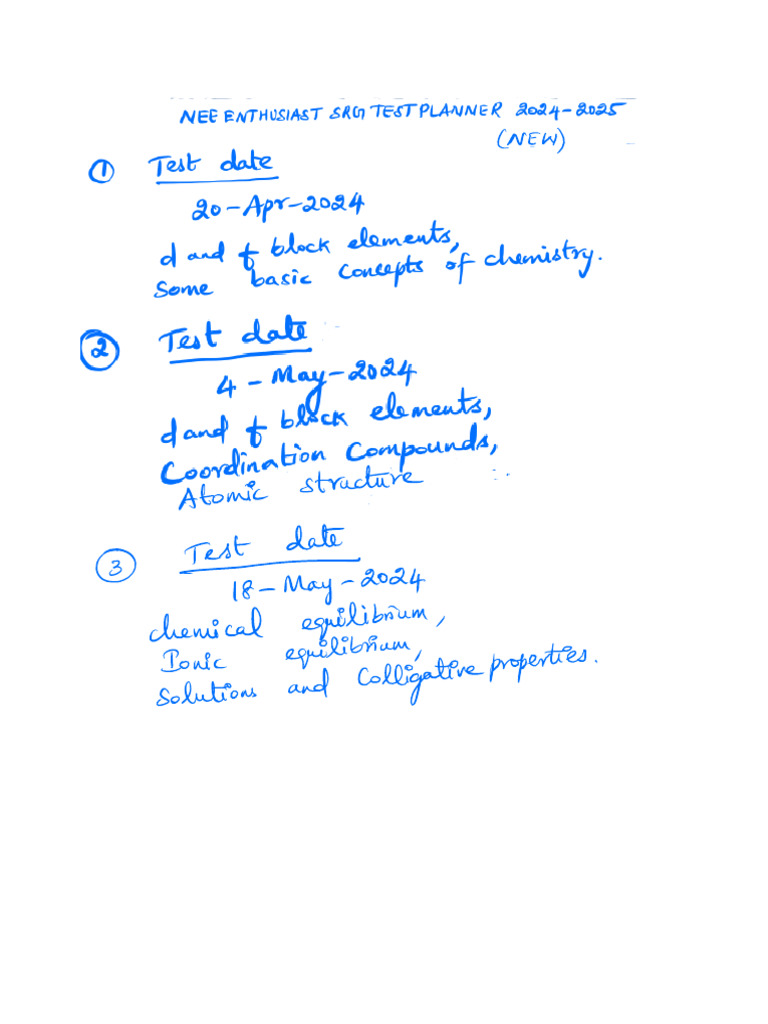 NEE ENTHUSIAST SRG TEST PLANNER 2024-2025
(NEW)
① Test date
20-Apr-2024
d and f block elements,
Some basic concepts of chemistry.
② Test date
4-May-2024
d and f block elements,
Coordination Compounds,
Atomic structure
③ Test date
18-May-2024
chemical equilibrium,
Ionic equilibrium,
Solutions and Colligative properties.